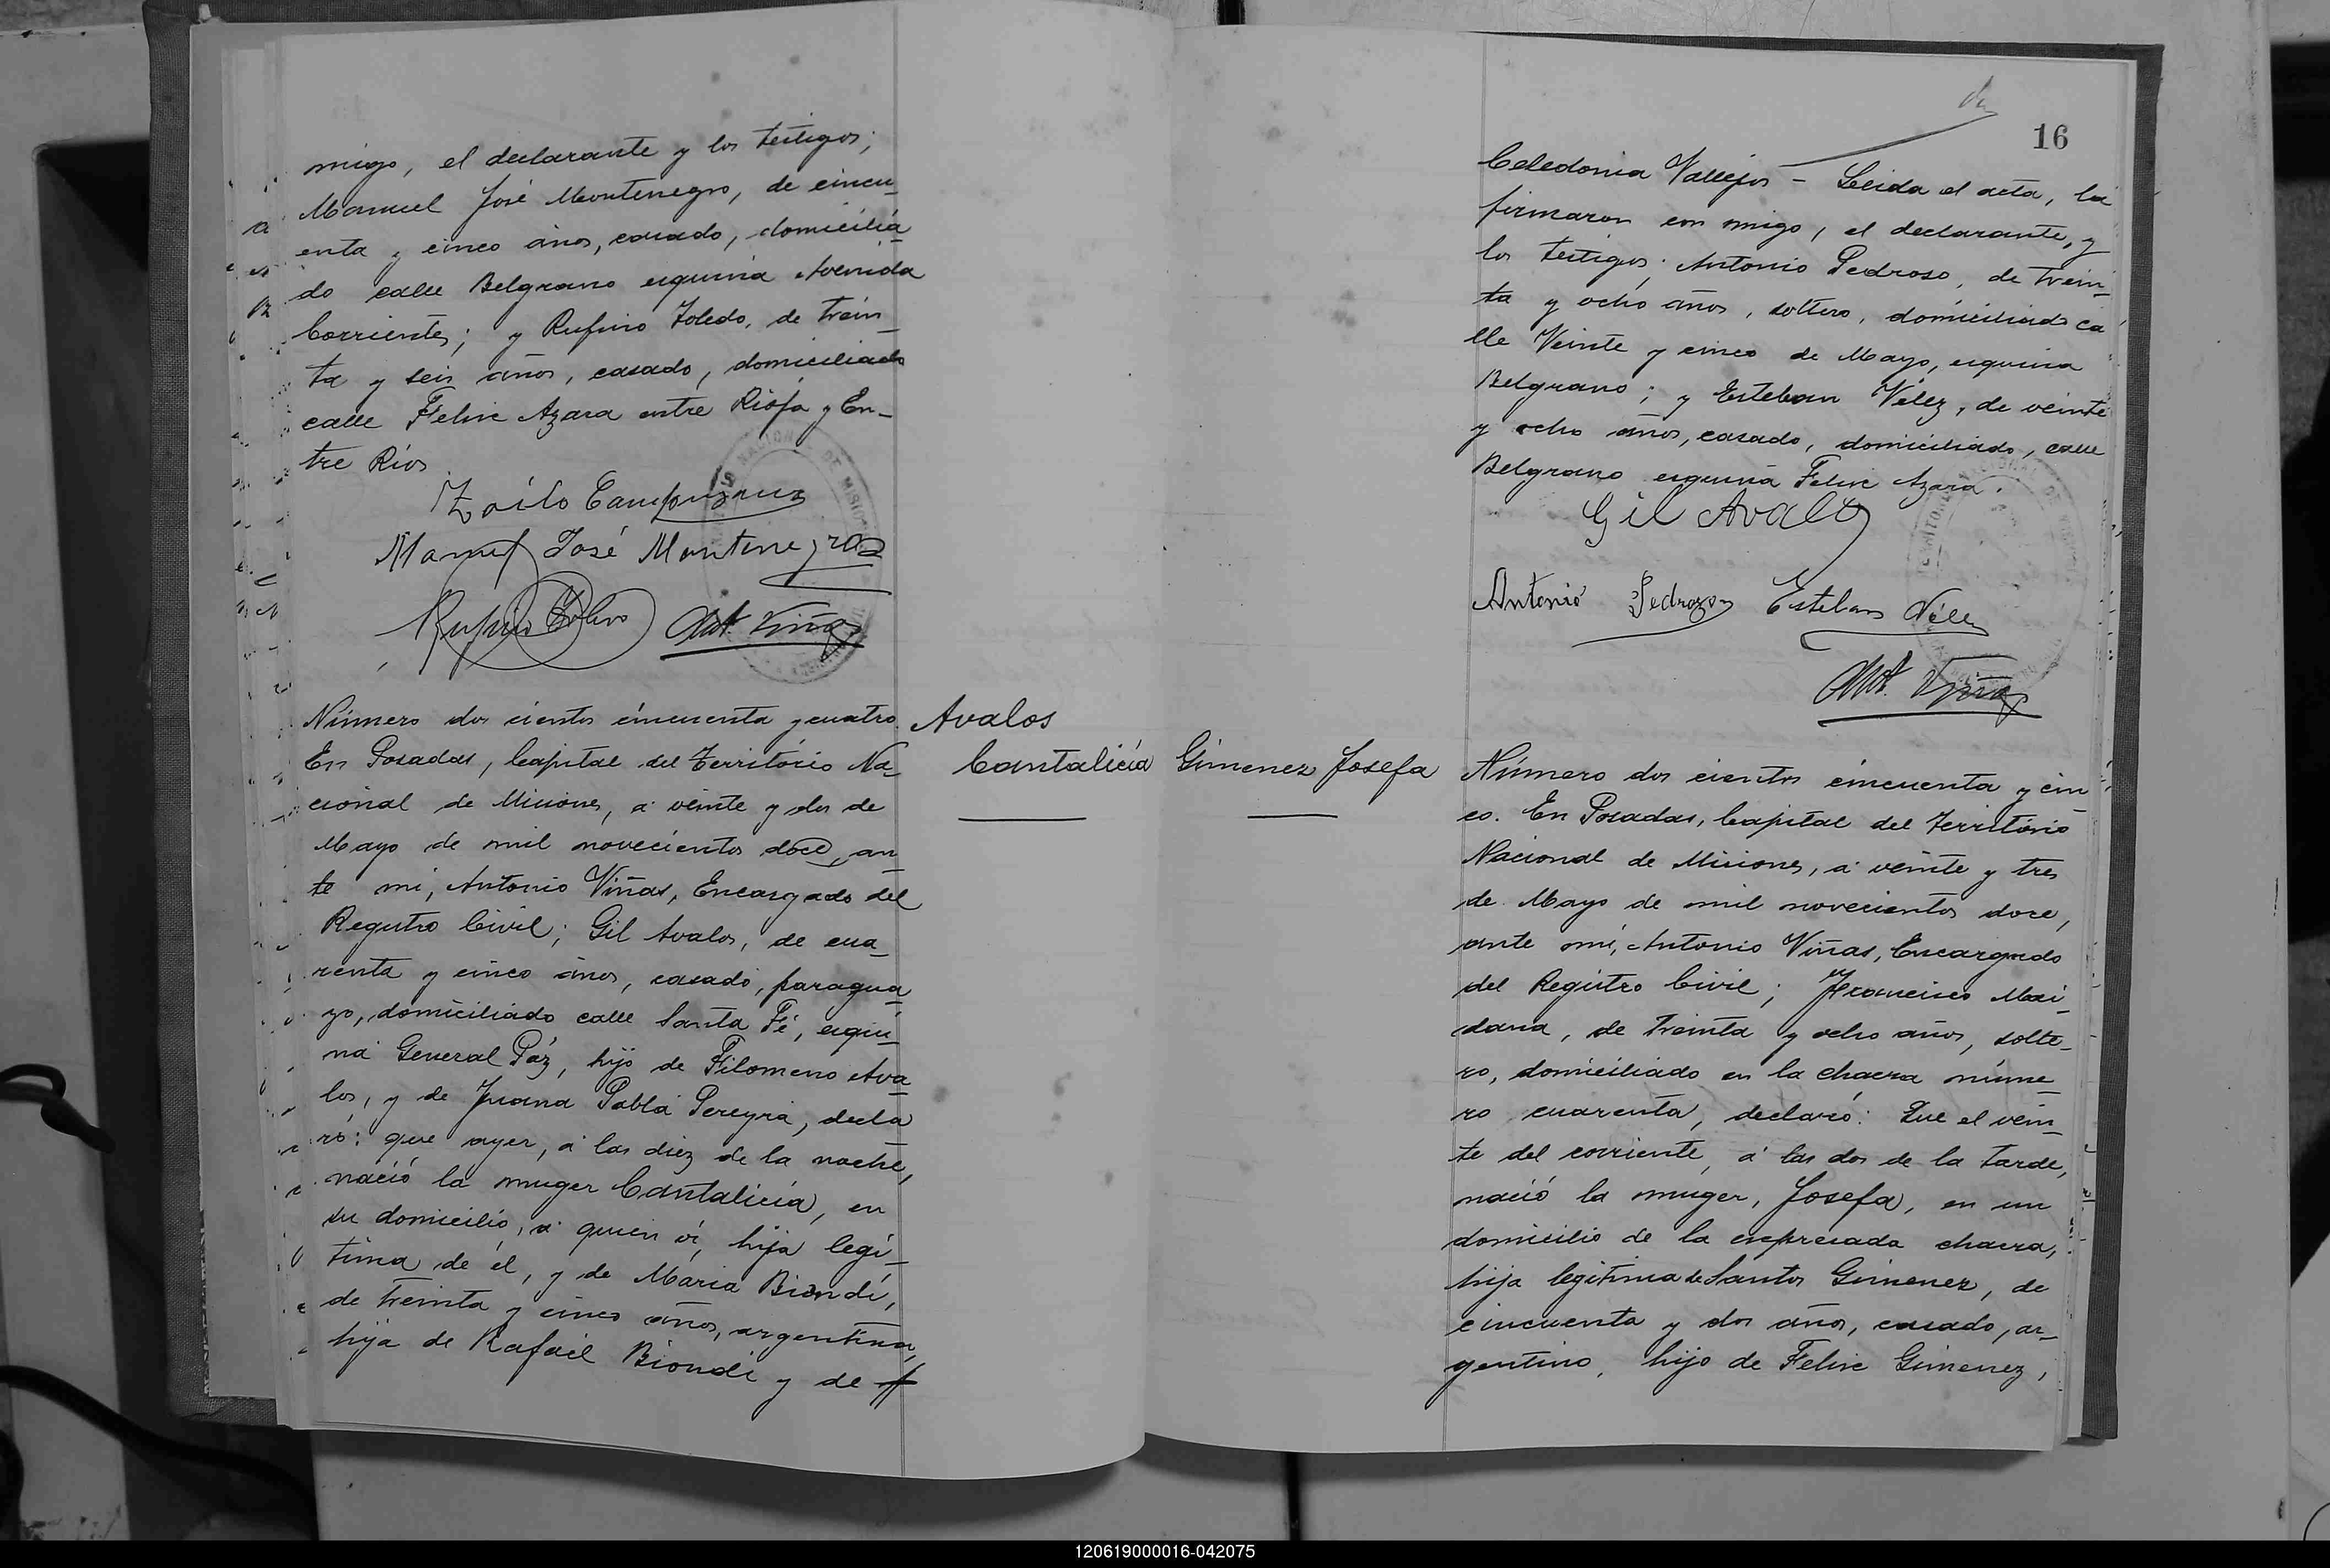 migo, el declarante y los testigos;
Manuel José Montenegro, de cincu_
enta y cinco años, casado, domicilia_
do calle Belgrano esquina Avenida
Corrientes; y Rufino Toledo, de trein_
ta y seis años, casado, domiciliado
calle Felix Azara entre Rioja y En_
tre Rios
Zoilo Campuzano
Manuel José Montenegro
Rufino Toledo Ant. Viñas
Número dos cientos cincuenta y cuatro.
En Posadas, Capital del Territorio Na_
cional de Misiones, a veinte y dos de
Mayo de mil novecientos doce, an_
te mi, Antonio Viñas, Encargado del
Registro Civil; Gil Avalos, de cua_
renta y cinco años, casado, paragua_
yo, domiciliado calle Santa Fé, esqui_
na General Páz, hijo de Filomeno Ava_
los, y de Juana Pabla Pereyra, decla_
ró: que ayer, a las diez de la noche,
nació la muger Cantalicia, en
su domicilio, a quien ví, hija legi_
tima de él, y de Maria Biondi,
de treinta y cinco años, argentina,
hija de Rafael Biondi y de
Avalos
Cantalicia
16
Celedonia Vallejos - Leida el acta, la
firmaron con migo, el declarante, y
los testigos: Antonio Pedroso, de trein_
ta y ocho años, soltero, domiciliado ca_
lle Veinte y cinco de Mayo, esquina
Belgrano; y Esteban Vélez, de veinte
y ocho años, casado, domiciliado, calle
Belgrano esquina Felix Azara.
Gil Avalos
Antonio Pedrozo Esteban Vélez
Ant. Viñas
Gimenez Josefa
Número dos cientos cincuenta y cin_
co. En Posadas, Capital del Territorio
Nacional de Misiones, a veinte y tres
de Mayo de mil novecientos doce,
ante mi, Antonio Viñas, Encargado
del Registro Civil; Francisco Mai_
dana, de treinta y ocho años, solte_
ro, domiciliado en la chacra núme_
ro cuarenta, declaró: Que el vein_
te del corriente, a las dos de la tarde,
nació la muger, Josefa, en un
domicilio de la expresada chacra,
hija legitima de Santos Gimenez, de
cincuenta y dos años, casado, ar_
gentino, hijo de Felix Gimenez,
120619000016-042075